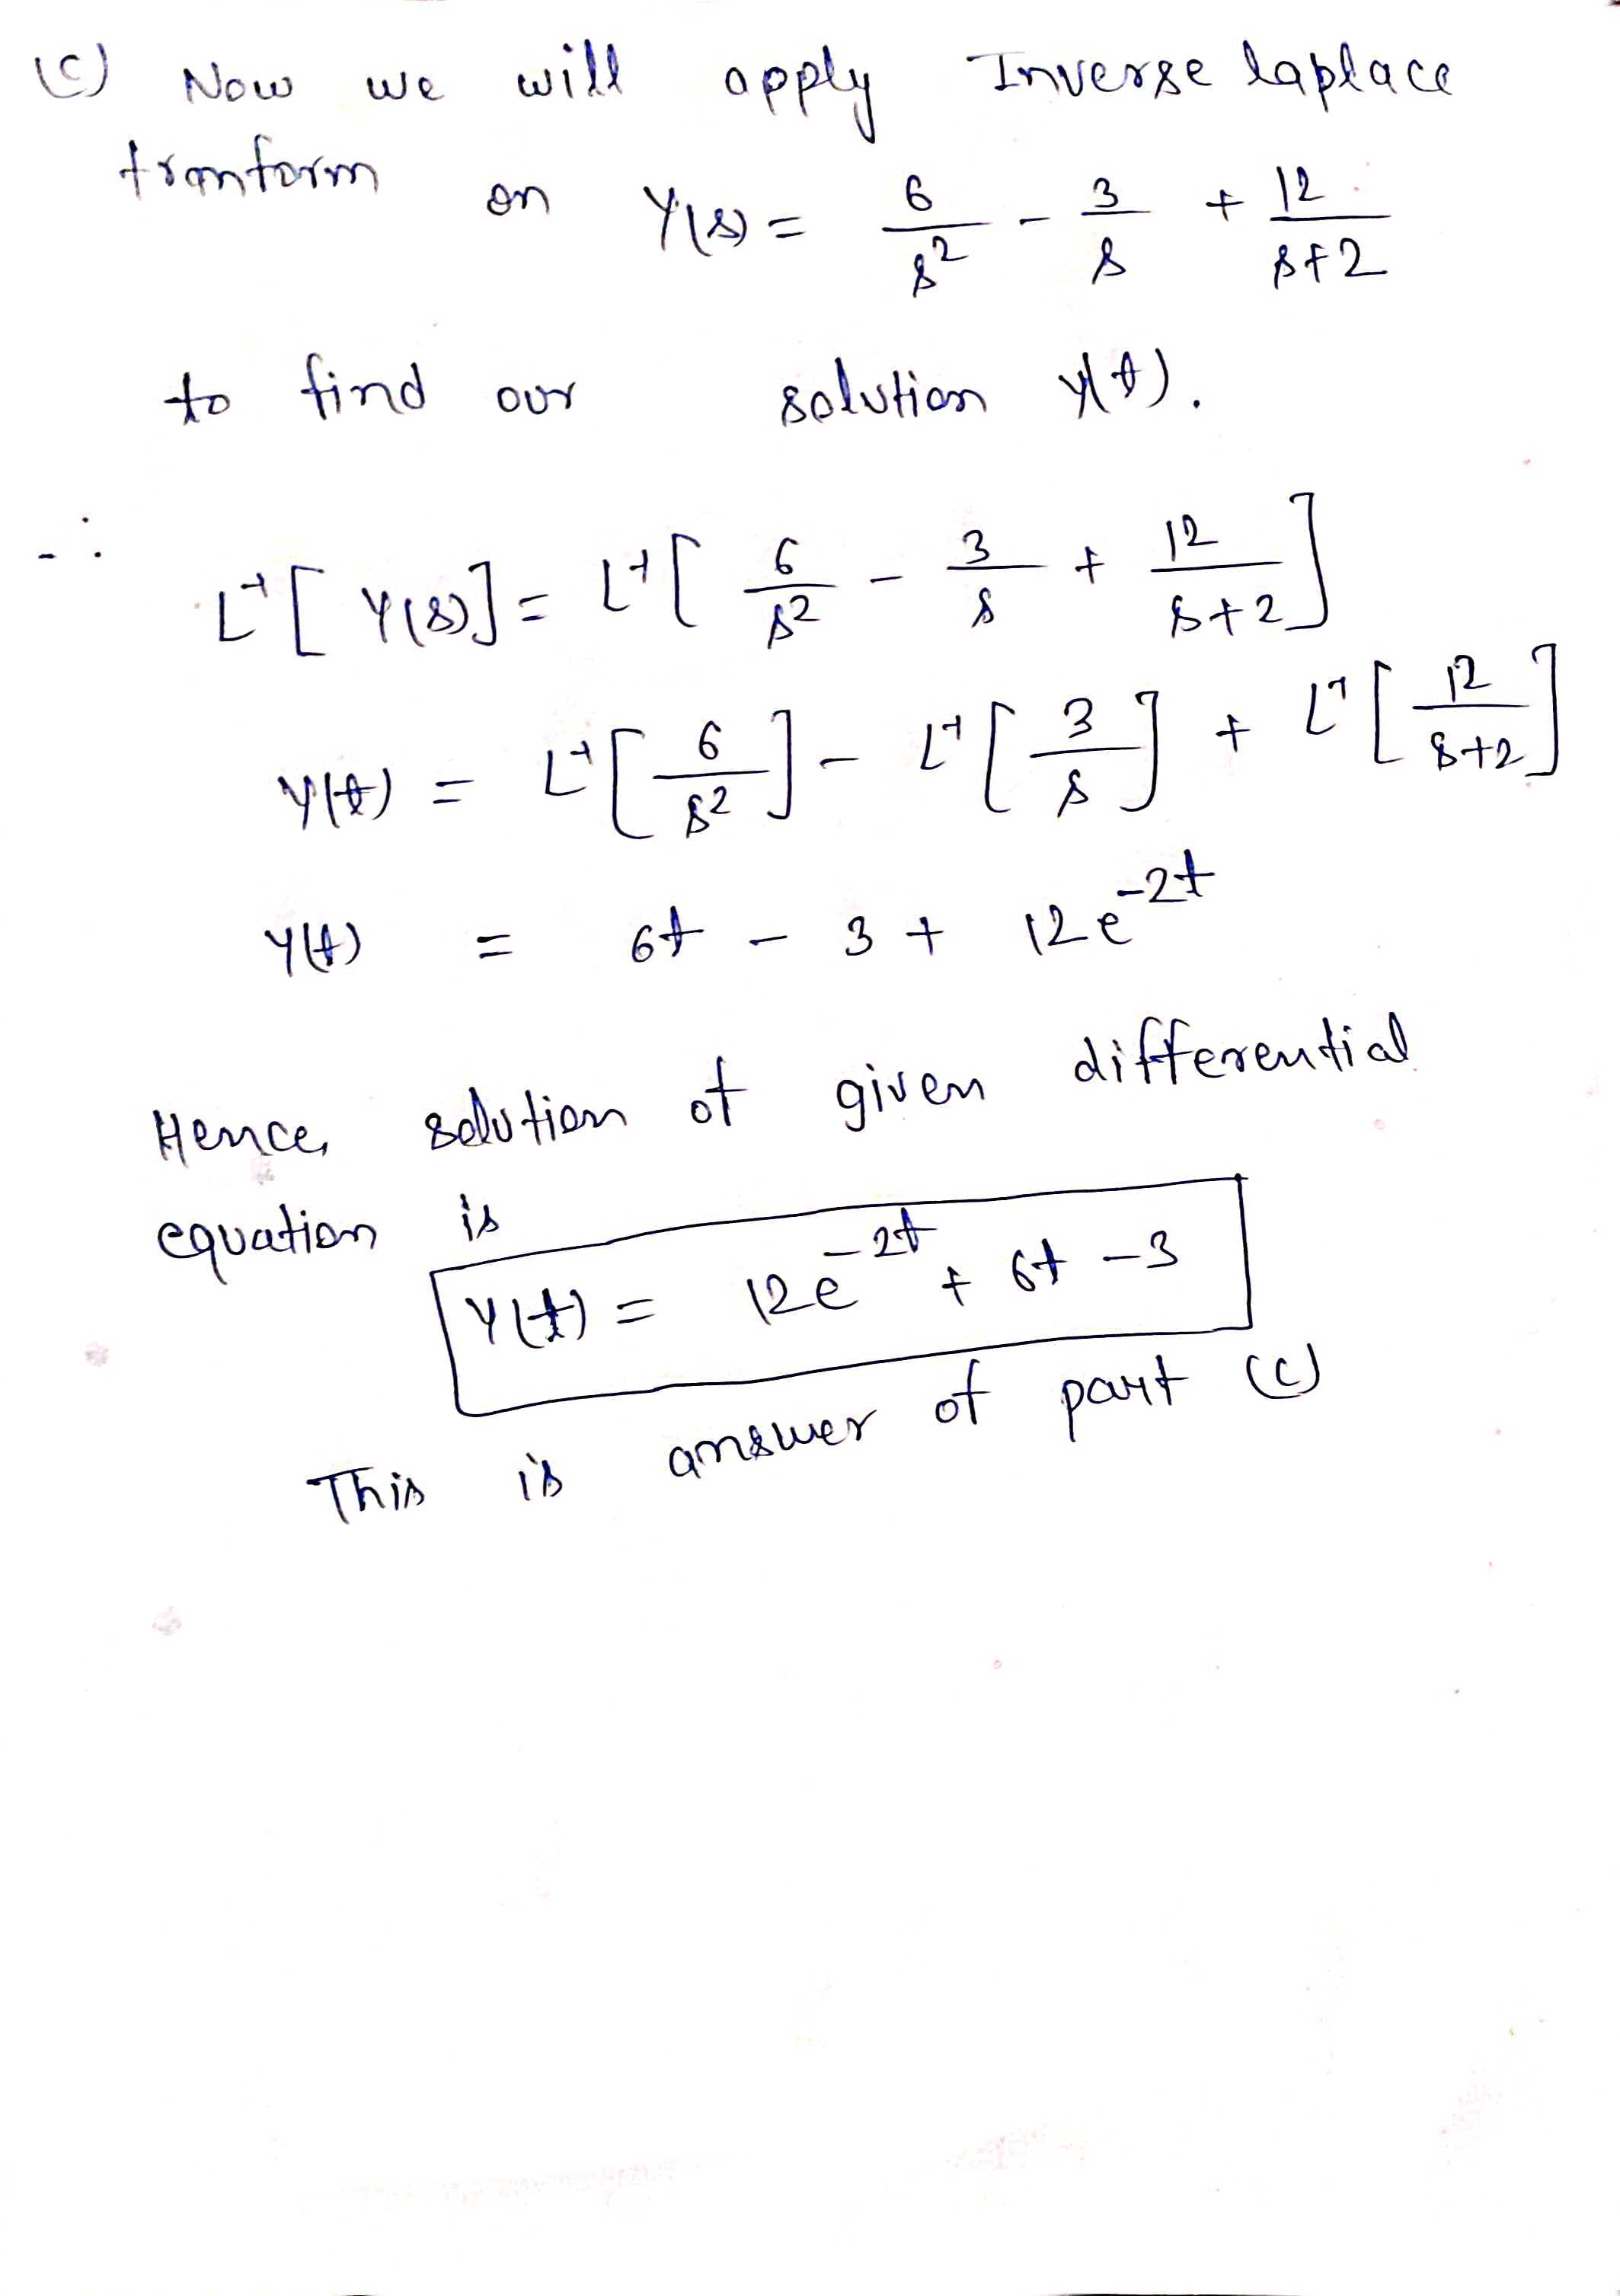 (c) Now we will apply Inverse laplace
tranform on Y(s) = 6/s² - 3/s + 12/s+2
to find our solution y(t).
∴ L⁻¹[Y(s)] = L⁻¹[6/s² - 3/s + 12/s+2]
y(t) = L⁻¹[6/s²] - L⁻¹[3/s] + L⁻¹[12/s+2]
y(t) = 6t - 3 + 12e^-2t
Hence, solution of given differential
equation is
y(t) = 12e^-2t + 6t - 3
This is answer of part (c)